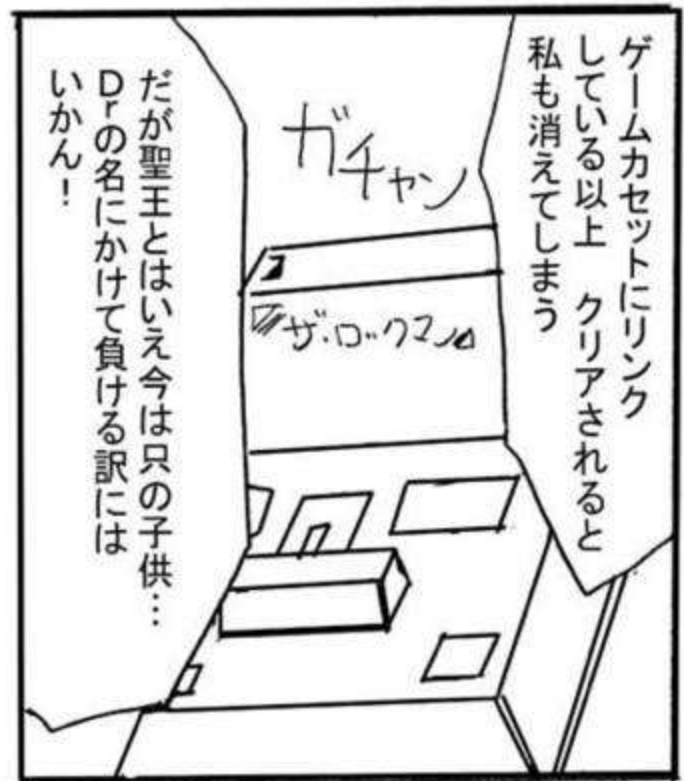 ゲームカセットにリンク
している以上　クリアされると
私も消えてしまう
ガチャン
ザ・ロックマン
だが聖王とはいえ今は只の子供…
Drの名にかけて負ける訳には
いかん！